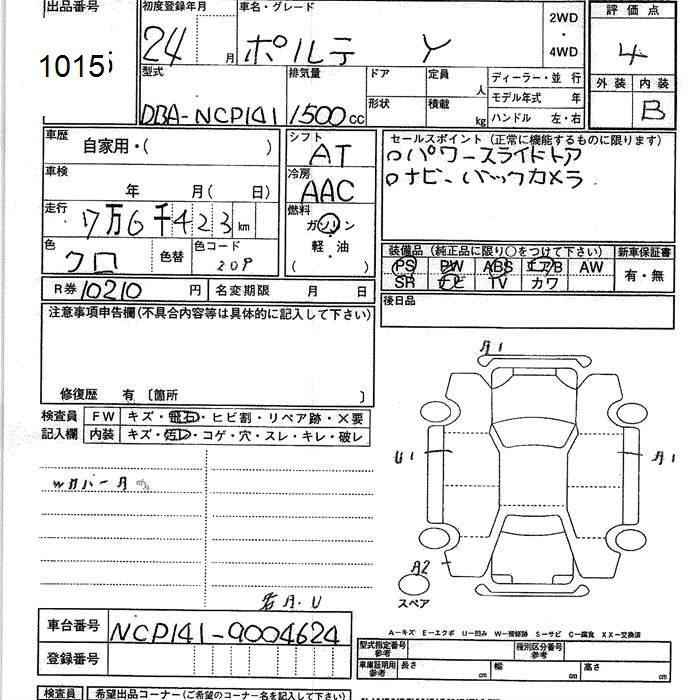 出品番号
1015
初度登録年月
24 月
車名・グレード
ポルテ Y
2WD
・
4WD
評価点
4
外装 内装
B
型式
DBA-NCP141
排気量
1500 cc
ドア
形状
定員 人
積載 kg
ディーラー・並 行
モデル年式 年
ハンドル 左・右
車歴
自家用・( )
車検
年 月( 日)
走行
7万6千423 km
色
クロ
色替
色コード
209
シフト
AT
冷房
AAC
燃料
ガソリン
・
軽油
( )
セールスポイント (正常に機能するものに限ります)
○パワースライドドア
○ナビ、バックカメラ
装備品 (純正品に限り○をつけて下さい)
新車保証書
PS PW ABS エアB AW
SR ナビ TV カワ
有・無
R券 10210 円
名変期限 月 日
後日品
注意事項申告欄(不具合内容等は具体的に記入して下さい)
修復歴 有 〔箇所 〕
検査員
記入欄
FW キズ・飛石・ヒビ割・リペア跡・×要
内装 キズ・汚レ・コゲ・穴・スレ・キレ・破レ
A1
U1
A1
A2
スペア
A-キズ E-エクボ U-凹み W-補修跡 S-サビ C-腐食 XX-交換済
車台番号
NCP141-9004624
登録番号
型式指定番号
参考
種別区分番号
参考
車庫証明用
参考
長さ cm
幅 cm
高さ cm
検査員
希望出品コーナー(ご希望のコーナー名を記入して下さい)